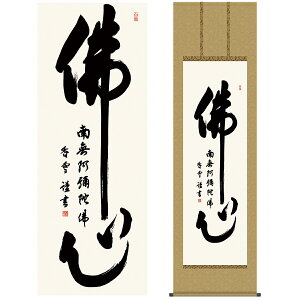 佛心
南無阿彌陀佛
香雪謹書
佛心
南無阿彌陀佛
香雪謹書